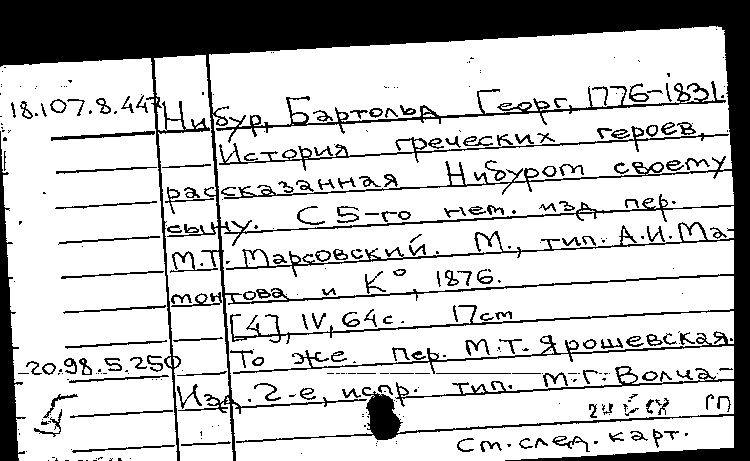 18.107.8.447 Нибур, Бартольд Георг, 1776-1831.
История греческих героев,
рассказанная Нибуром своему
сыну. С 5-го нем. изд. пер.
М.Т. Марсовский. М., тип. А.И. Ма-
монтова и К°, 1876.
[4], IV, 64 с. 17 см
20.98.5.250 То же. пер. М.Т. Ярошевская.
Изд. 2-е, испр. тип. М.Г. Волча-
См. след. карт.